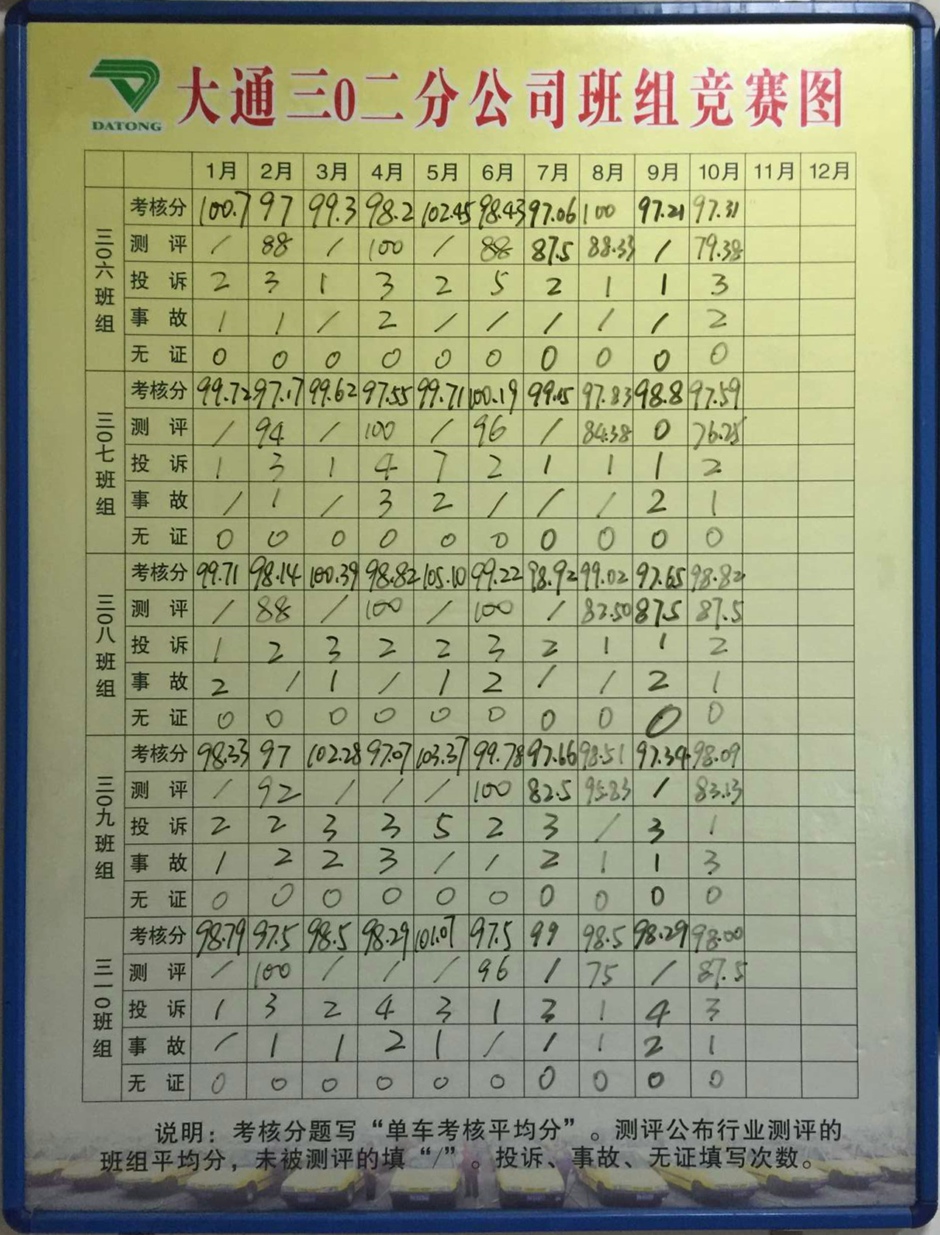 DATONG
大通三0二分公司班组竞赛图
1月 2月 3月 4月 5月 6月 7月 8月 9月 10月 11月 12月
三〇六班组
考核分 100.7 97 99.3 98.2 102.45 98.43 97.06 100 97.21 97.31
测评 / 88 / 100 / 88 87.5 88.33 / 79.38
投诉 2 3 1 3 2 5 2 1 1 3
事故 1 1 / 2 / / / / / 2
无证 0 0 0 0 0 0 0 0 0 0
三〇七班组
考核分 99.72 97.17 99.62 97.55 99.71 100.19 99.15 97.83 98.8 97.59
测评 / 94 / 100 / 96 / 84.38 0 76.25
投诉 1 3 1 4 7 2 1 1 1 2
事故 / 1 / 3 2 / / / 2 1
无证 0 0 0 0 0 0 0 0 0 0
三〇八班组
考核分 99.71 98.14 100.39 98.82 105.10 99.22 98.92 99.02 97.65 98.82
测评 / 88 / 100 / 100 / 82.50 87.5 87.5
投诉 1 2 3 2 2 3 2 1 1 2
事故 2 / 1 / 1 2 / / 2 1
无证 0 0 0 0 0 0 0 0 0 0
三〇九班组
考核分 98.33 97 102.28 97.07 103.37 99.78 97.66 98.51 97.34 98.09
测评 / 92 / / / 100 82.5 95.83 / 83.13
投诉 2 2 3 3 5 2 3 / 3 1
事故 1 2 2 3 / / 2 1 1 3
无证 0 0 0 0 0 0 0 0 0 0
三一〇班组
考核分 98.79 97.5 98.5 98.29 101.07 97.5 99 98.5 98.29 98.00
测评 / 100 / / / 96 / 75 / 87.5
投诉 1 3 2 4 3 1 3 1 4 3
事故 / 1 1 2 1 / 1 1 2 1
无证 0 0 0 0 0 0 0 0 0 0
说明：考核分题写“单车考核平均分”。测评公布行业测评的
班组平均分，未被测评的填“/”。投诉、事故、无证填写次数。